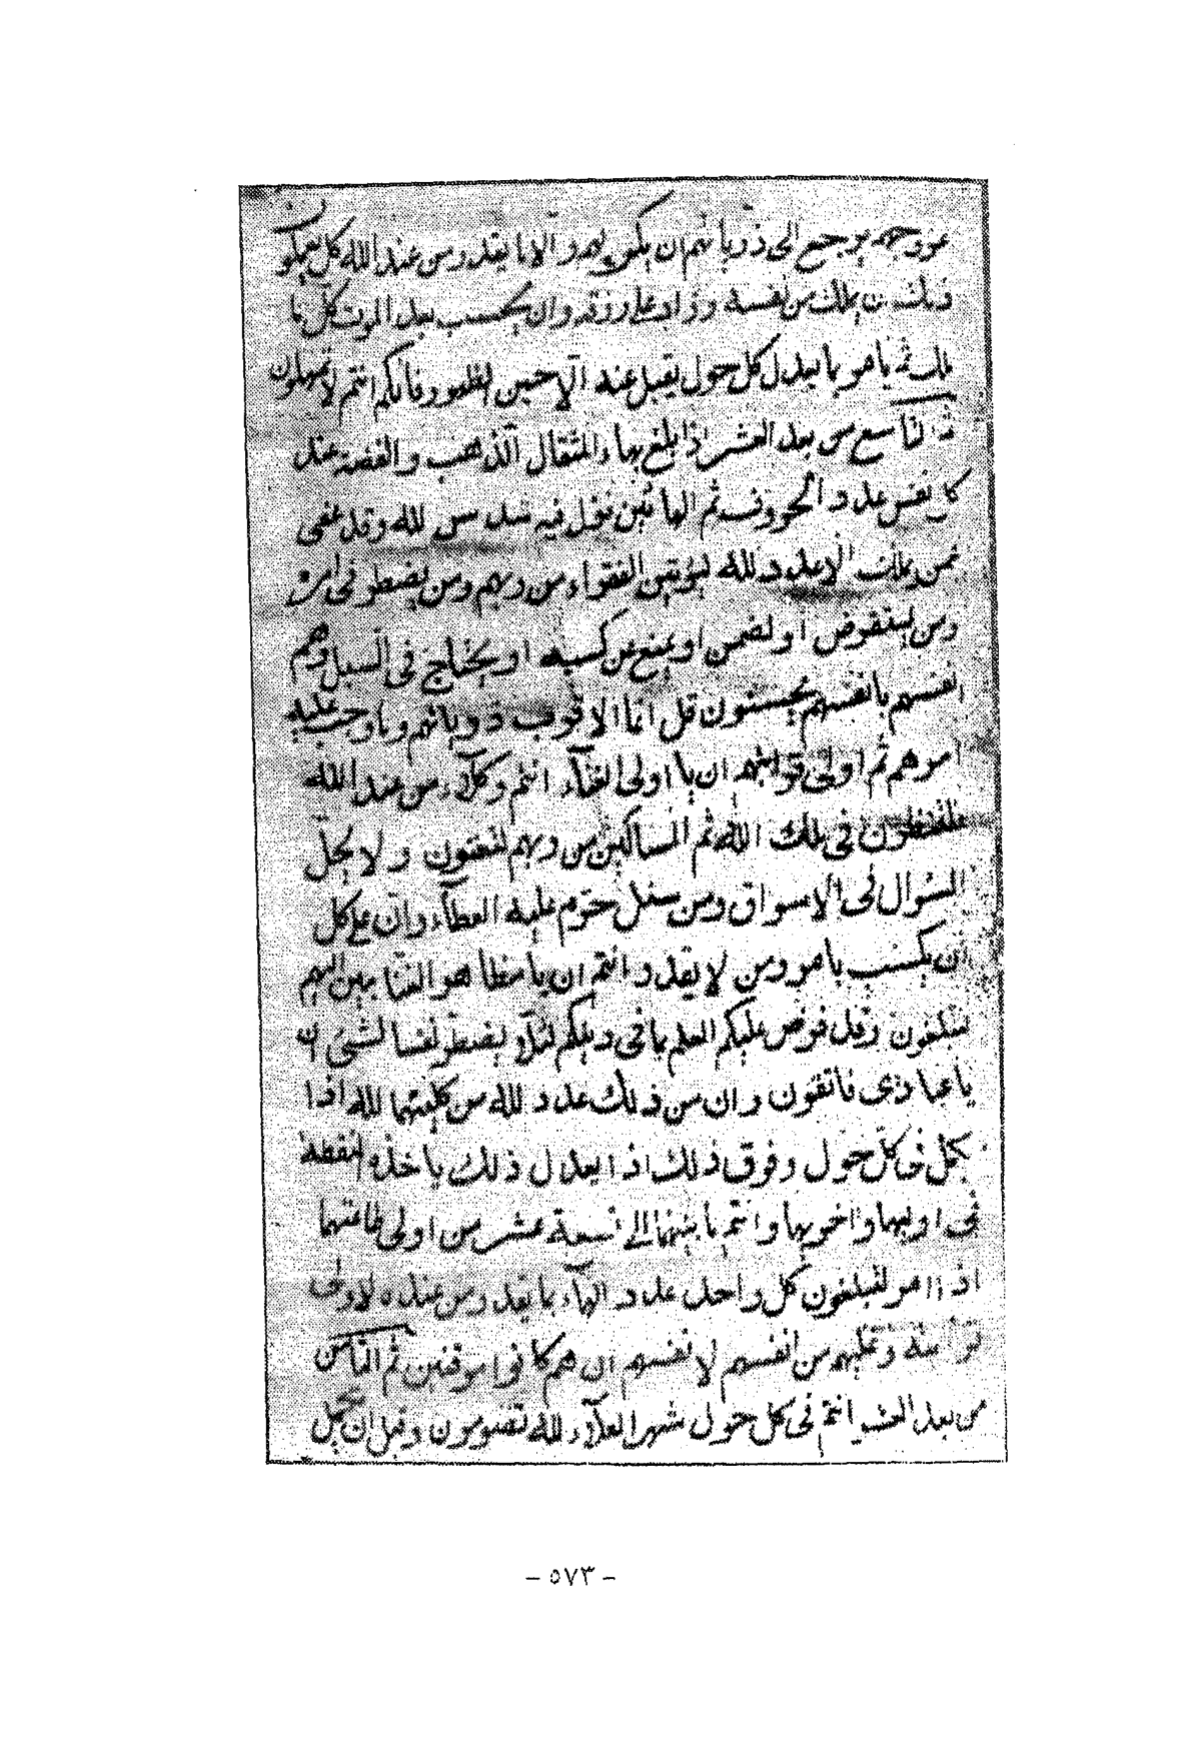 عز وجهه يرجع الى ذرياتهم ان يكونن والا ما يقدر من عند الله كل يملكون
يملك من نفسه وزاد على رزقه وان يحسب بعد الموت كل ما
ملك ثم ما هو ما يعدل كل حول يقبل عنه الا حين الظهور فانكم انتم لا تمهلون
ثم التاسع من بعد العشر اذا بلغ بهاء المثقال الذهب والفضة عند
كل نفس عدد الحروف ثم الهائين نزل فيه لله وقد عفى
عمن يملك الا عدد لله ليؤتين الفقراء من ربهم ومن يضطر فى امره
ومن يستقرض او لضمن او يمنع عن كسبه او يحتاج فى السبل وهم
انفسهم بانفسهم يحسبون قل انما الاقرب ذرياتهم وما وجب عليه
امرهم ثم اولى قرابتهم ان يا اولى الغناء انتم وكلاء من عند الله
فلتنظرون فى ملك الله ثم المساكين من ربهم لتغنون ولا يحل
السؤال فى الاسواق ومن سئل حرم عليه العطاء وان على كل
ان يكسب بامر ومن لا يقدر انتم ان يا مظاهر الغنا اليهم
لتبلغون وقد فرض عليكم العلم بما فى دينكم لئلا يضطر نفسا لشىء ان
يا عبادى فاتقون وان من ذلك عدد لله من كلتيهما لله اذا
يكمل فى كل حول وفوق ذلك اذ ايعدل ذلك ياخذه النقطة
فى اوليها واخريها وانتم ما بينهما الى تسعة عشر من اولى طاعتهما
اذا امر لتبلغون كل واحد عدد الهاء ما يقدر من عنده لاولى
من انفسهم لانفسهم ان هم كانوا موقنين ثم الثامن
من بعد العشر انتم فى كل حول شهر العلاء لله تصومون وقبل ان يكمل
- ٥٧٣ -